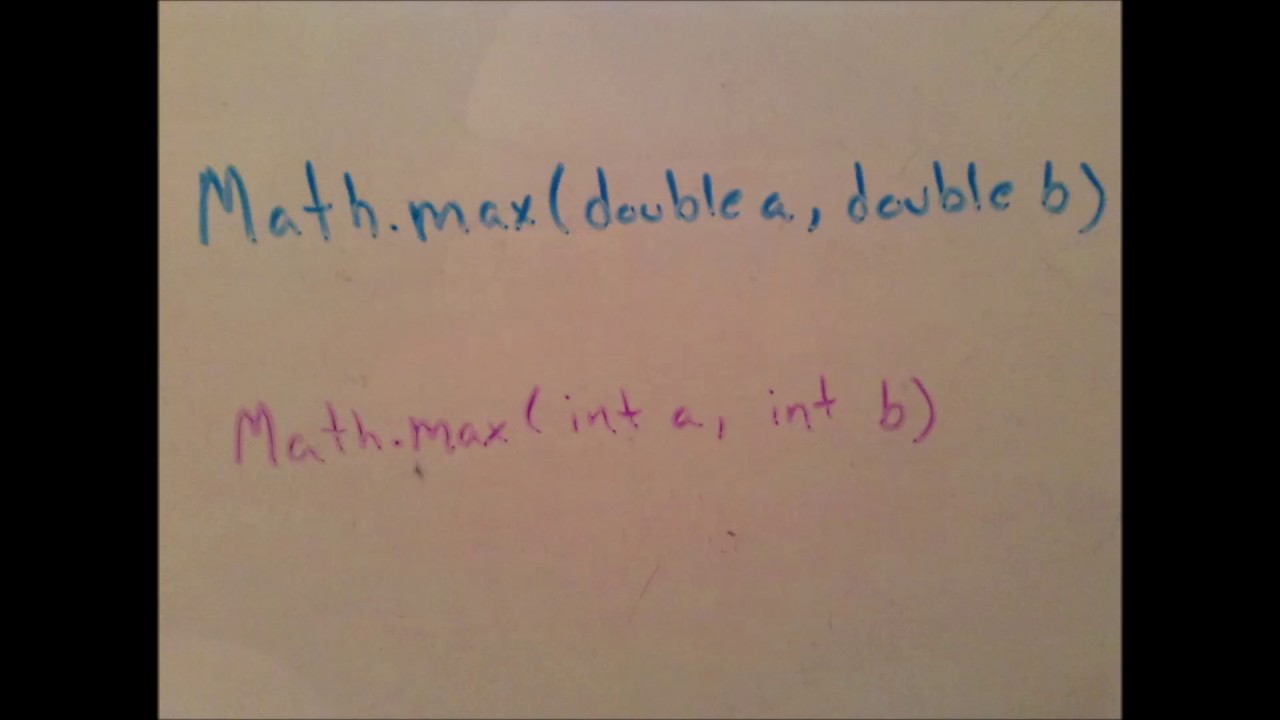 Math.max(double a, double b)
Math.max(int a, int b)